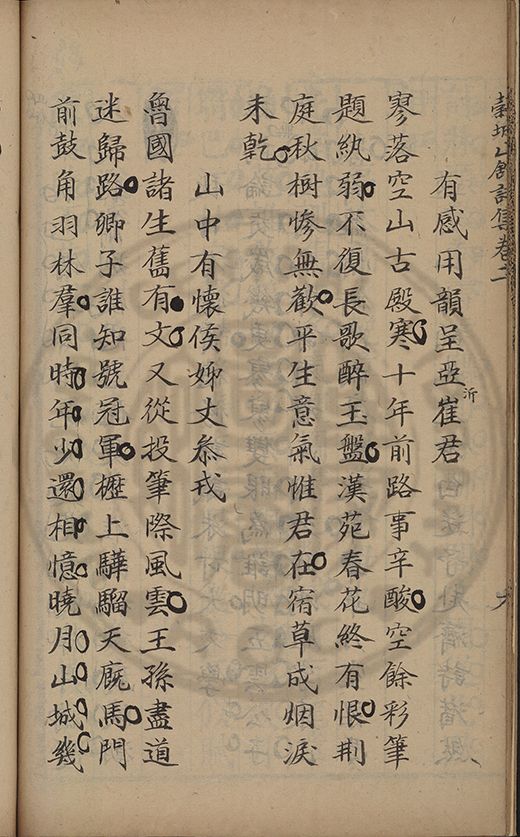 有感用韻呈亞沂崔君
寥落空山古殿寒十年前路事辛酸空餘彩筆
題紈弱不復長歌醉玉盤漢苑春花終有恨荆
庭秋樹慘無歡平生意氣惟君在宿草成烟淚
未乾
山中有懷侯姊丈叅戎
魯國諸生舊有文又從投筆際風雲王孫盡道
迷歸路卿子誰知號冠軍櫪上驊騮天廐馬門
前鼓角羽林羣同時年少還相憶曉月山城幾
山舎詩集卷二